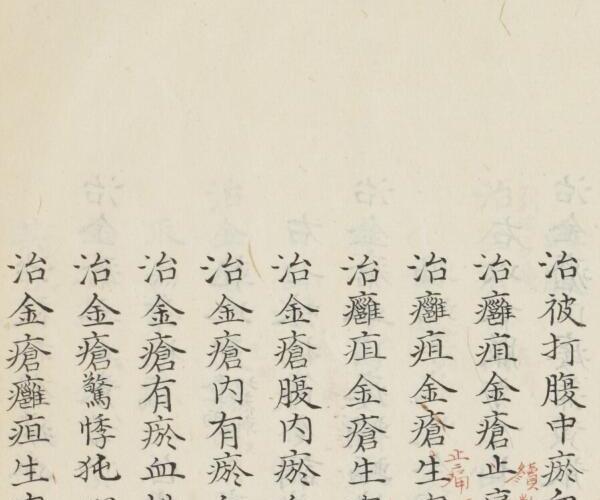 治被打腹中瘀
治癰疽金瘡止
治癰疽金瘡生
治癰疽金瘡生
治金瘡腹内瘀
治金瘡内有瘀
治金瘡有瘀血
治金瘡驚悸㹠
治金瘡癰疽生
止痛
續